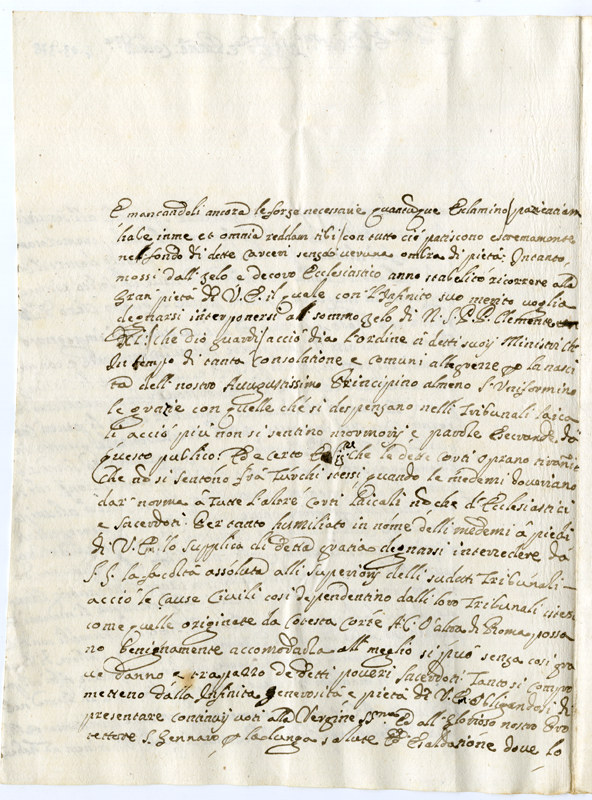 E mancandoli ancora le forze necessarie quantunque Esclamino/ patientiam
habe in me et omnia reddam tibi/ con tutto ciò patiscono estremamente
nel fondo di dette Carceri senza veruna ombra di pietà. Intanto
mossi dall'zelo e decoro Ecclesiastico anno stabelito ricorrere alla
Gran pietà di V. E. il quale con l'Infinito suo merito voglia
degnarsi interponersi all' sommo zelo di N. S. P. P. Clemente
XII/ che dio guardi/ acciò dia l'ordine a detti suoj Ministri che
In tempo di tanta Consolatione e comuni allegrezze p la nasci
ta dell' nostro Augustissimo Principino almeno s'Uniformino
le grazie con quelle che si despenzano nelli Tribunali laica
li acciò più non si sentino mormorij e parole esecrande da
questo publico. E e certo che le dette corti oprano tirannie
che nò si sentono frà Turchi stessi quando le medemi doveriano
dar' norma à tutte l'altre Corti laicali nò che d'Ecclesiastici
e sacerdoti. Per tanto humiliato in nome delli medemi à piedi
di V. E. lo supplica di detta gratia degnarsi intercedere da
S. S. la facoltà assoluta alli superiorj delli sudetti Tribunali
acciò le Cause Civili così dependentino dalli loro Tribunali
come quelle originate da Cotesta Corte A. C. ò altra di Roma possa
no benignamente accomodarla all' meglio si può senza così gra
ve danno e strapazzo de detti poveri sacerdoti. Tanto si compro
metteno dalla Infinita generosità e pietà di V. E. obligandosi di
presentare continuj voti alla Vergine SSma ed all' Glorioso nostro Pro
tettore S. Gennaro p la lunga salute ed Esaldazione dove lo